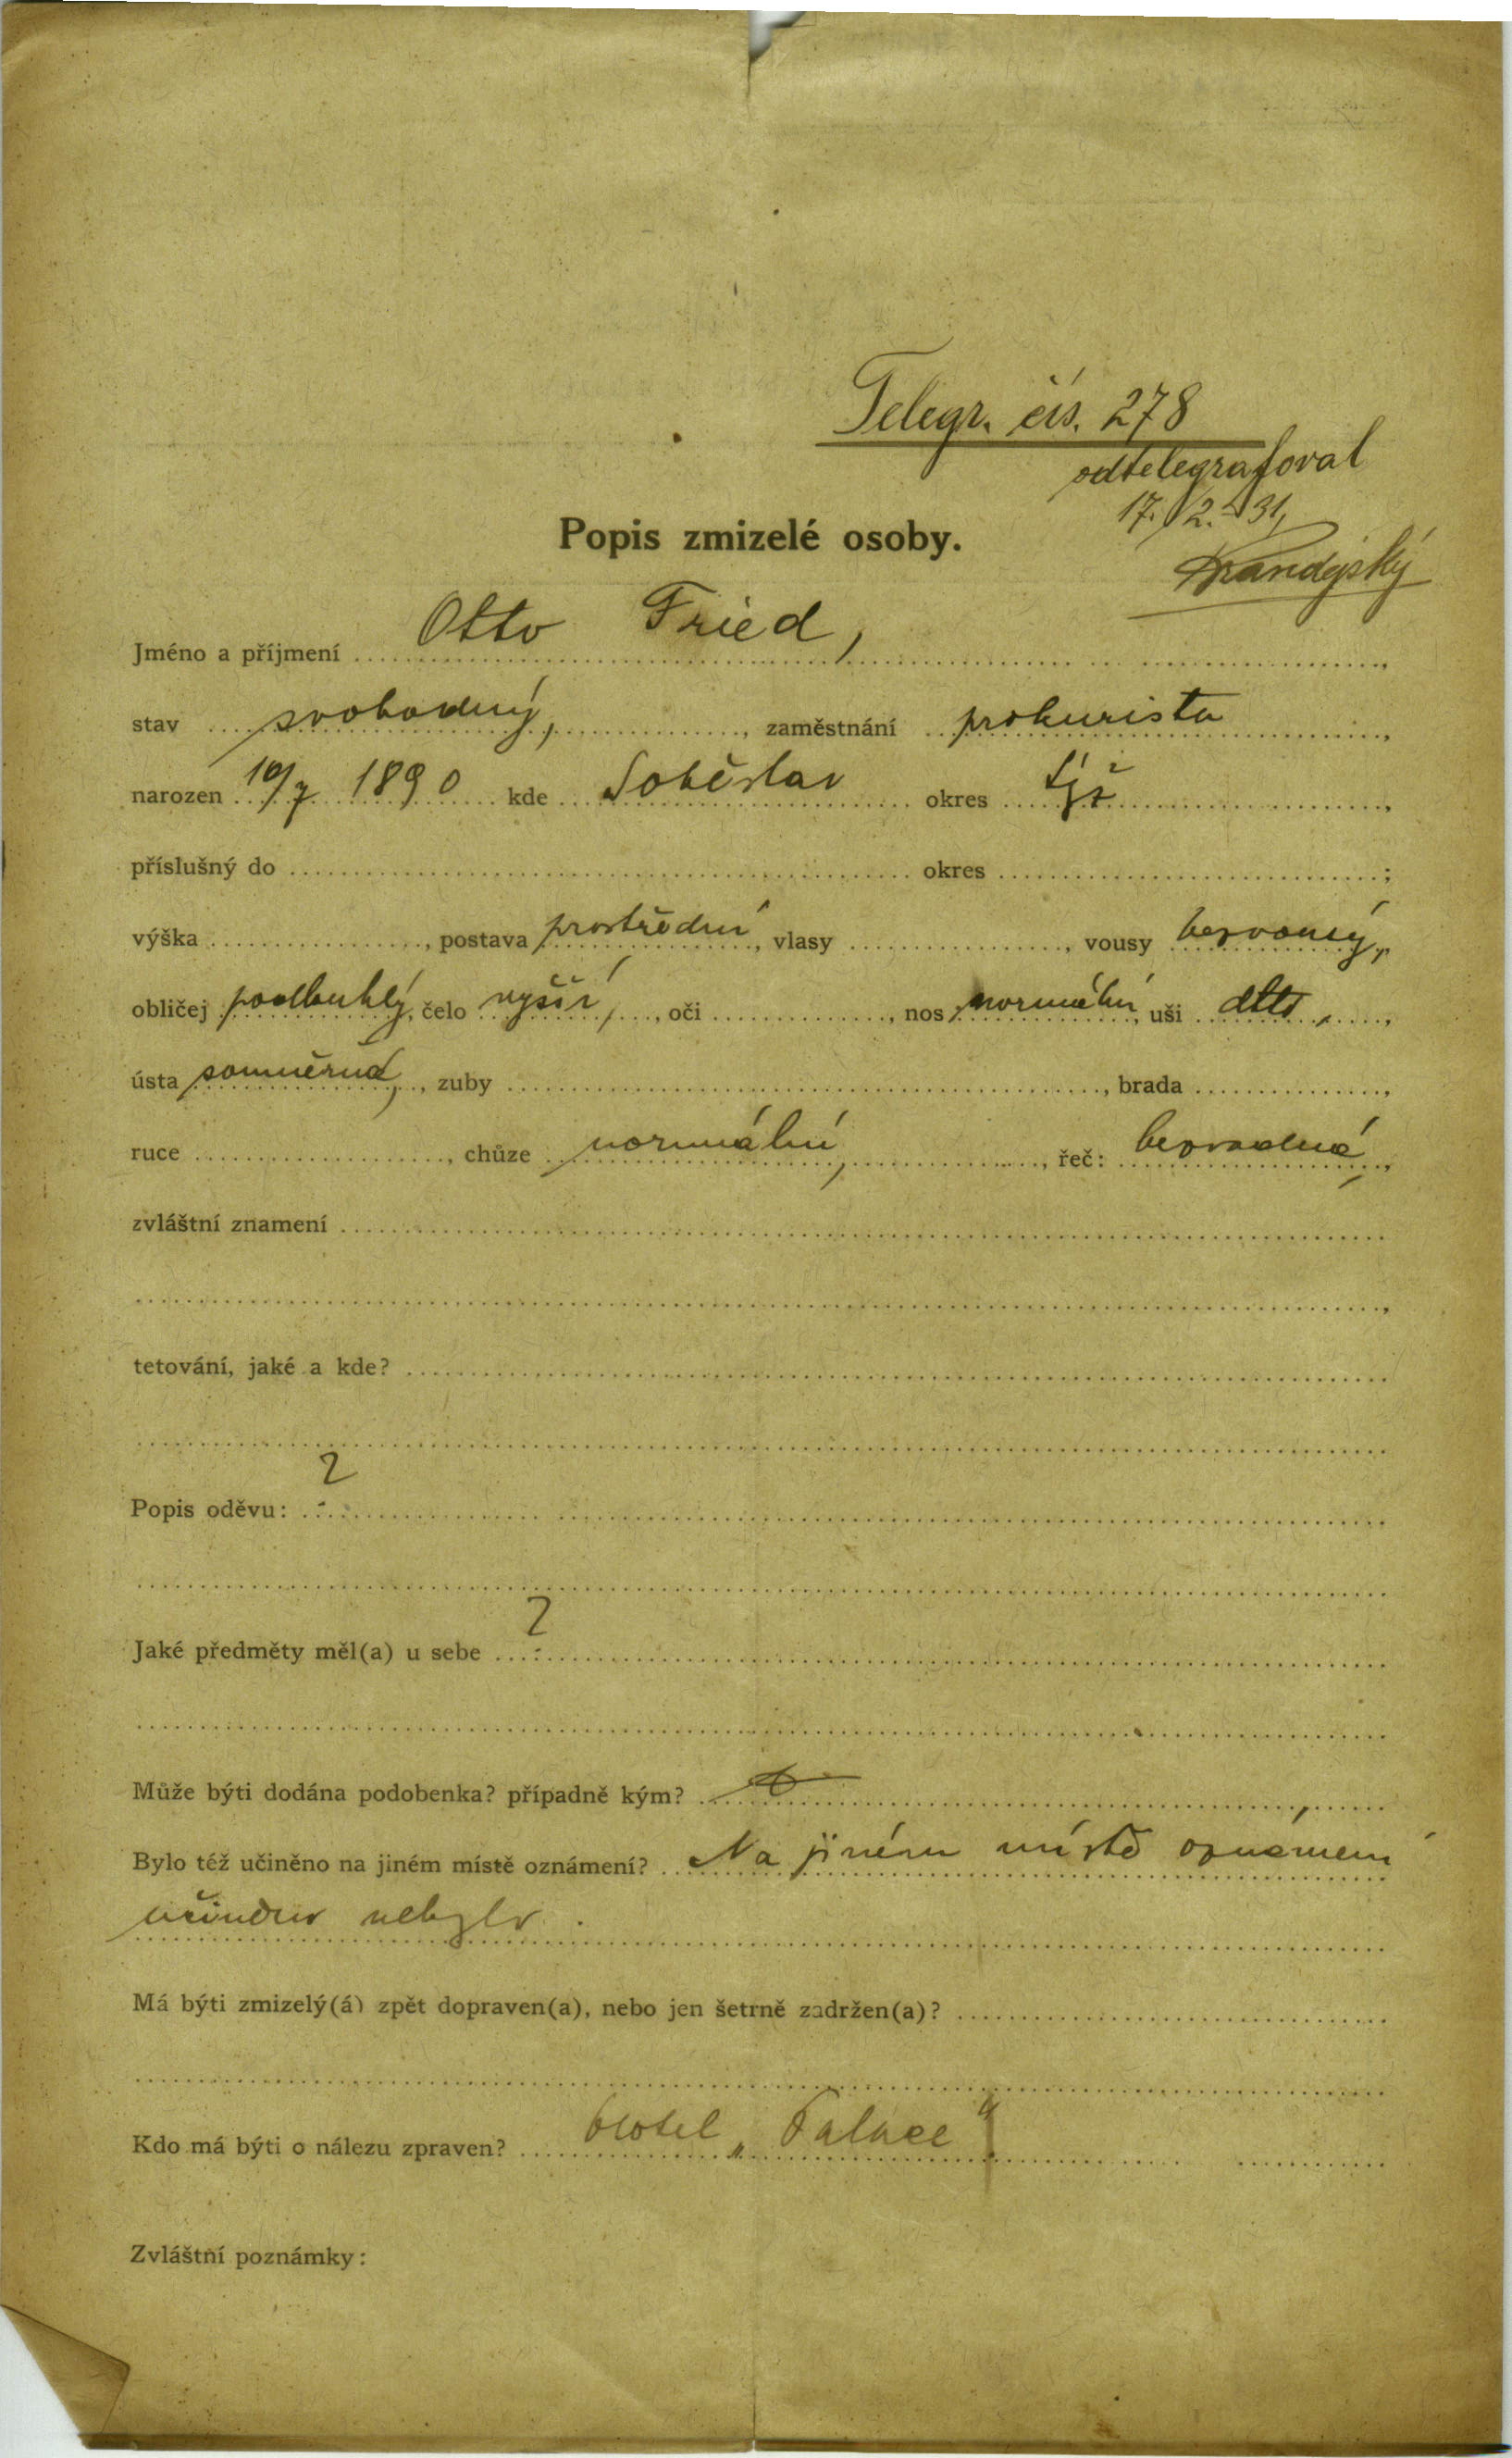 Telegr. čís. 278
odtelegrafoval
17./2. 31,
Brandýský
Popis zmizelé osoby.
Jméno a příjmení Otto Fried,
stav svobodný, zaměstnání prokurista
narozen 10/7 1890 kde Soběslav okres týž
příslušný do okres ;
výška , postava prostřední, vlasy , vousy bezvousý,
obličej podlouhlý, čelo vyšší, oči , nos normální, uši dtto,
ústa souměrná, zuby , brada ,
ruce , chůze normální, řeč: bezvadná,
zvláštní znamení
tetování, jaké a kde?
Popis oděvu: ?
Jaké předměty měl(a) u sebe ?
Může býti dodána podobenka? případně kým?
Bylo též učiněno na jiném místě oznámení? Na jiném místě oznámení
učiněno nebylo.
Má býti zmizelý(á) zpět dopraven(a), nebo jen šetrně zadržen(a)?
Kdo má býti o nálezu zpraven? Hotel „Palace“
Zvláštní poznámky: